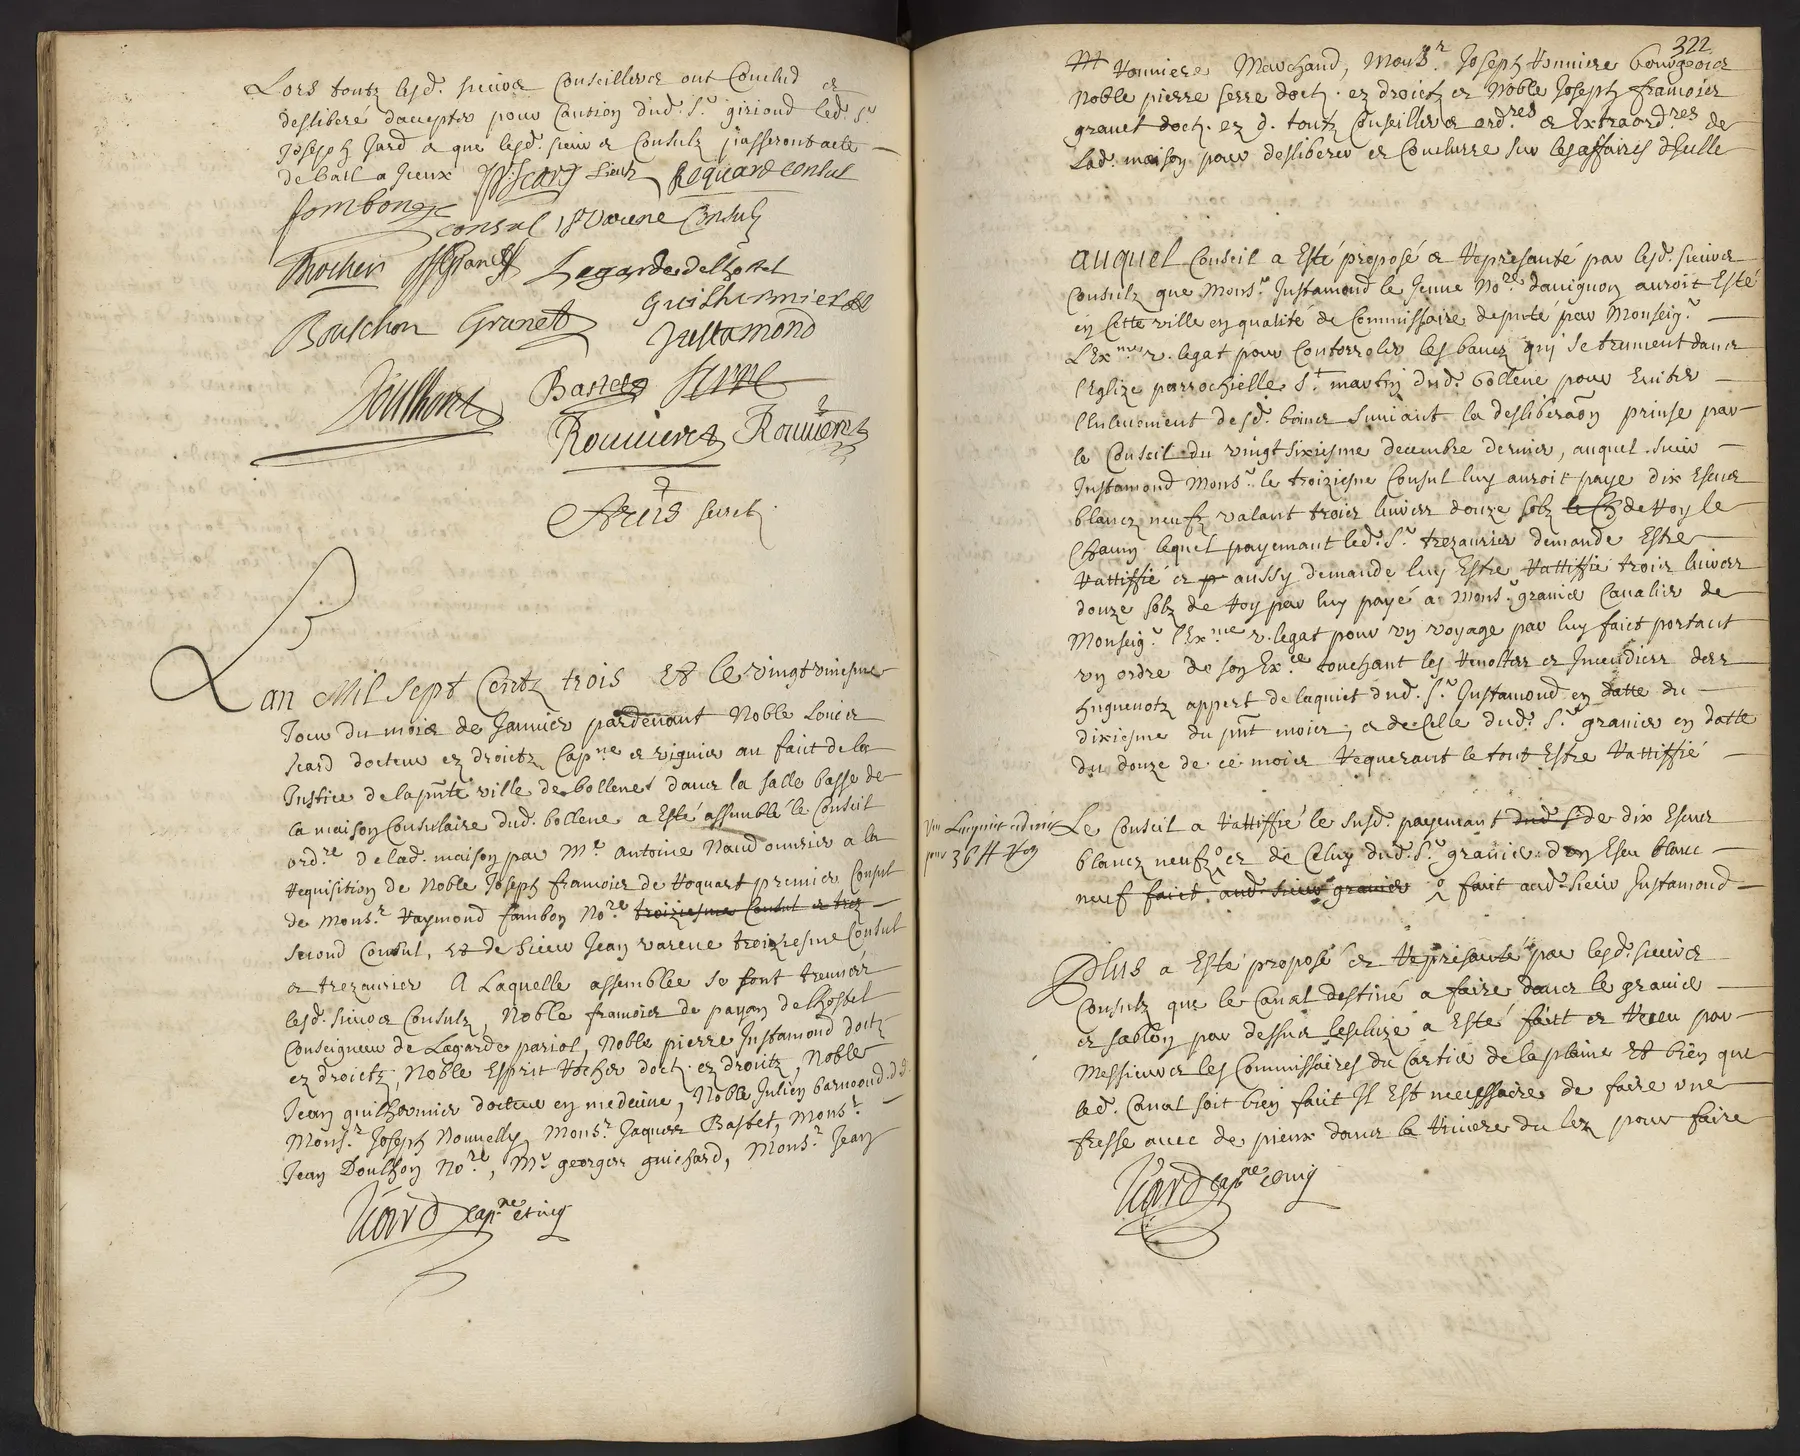 Lors toutz lesd. sieurs Conseillers ont Conclud et
deslibéré d'accepter pour Caution dud. Sr. giriond led. Sr
Joseph Jard a que lesd. sieurs Consulz passeront acte
de bail a Iceux Sicard Roquard consul
fombon consul Varene Consul
Rochier Lagardedelhostel
Bouchon Granet guilhermier
Justamond
Doulhon Bastet Serre
Rouviere Rouviere
Arcis secret.
Lan Mil Sept Centz trois Et le vingtuniesme
Jour du mois de Janvier pardevant Noble Louis
Sicard docteur ez droictz Capne et viguier au faict de la
Justice de la pnte ville de bollene, dans la salle basse de
la maison Consulaire dud. bollene a Esté assemblé le Conseil
ordre de lad. maison par Mr. antoine Naud ouvrier a la
Requisition de Noble Joseph françois de Roquart premier Consul
de Monsr. Raymond fambon Nore troiziesme Consul et trez
second Consul, et de sieur Jean varene troiziesme Consul
et trezaurier A Laquelle assemblée se sont treuvés
lesd. sieurs Consulz, Noble françois de payan de lhostel
Conseigneur de Lagarde pariol, Noble pierre Justamond doctr.
ez droictz, Noble Esprit Rochier doct. ez droictz, Noble
Jean guilhermier docteur en medecine, Noble Julien barnoond. d. d.
Monsr. Joseph Nouvelly, Monsr. Jaques Bastet, Monsr.
Jean Doulhon Nore, Mr georges guichard, Monsr. Jean
Sicard capne et vig
322
M Rouviere Marchand, Monsr. Joseph Rouviere bourgeois
Noble pierre serre doct. ez droictz et Noble Joseph françois
granet doct. ez d. toutz Conseillers ordres et Extraordres de
Lad. maison pour desliberer et Conclurre sur les affaires d'Icelle
auquel Conseil a Esté proposé et Represanté par lesd. sieurs
Consulz que Monsr. Justamond le Jeune Nore d'avignon auroit Esté
en Cette ville en qualité de Commissaire deputé par Monseigr.
L'Exme v. legat pour Controroler les bancz qui se treuvent dans
l'Eglize parrochielle St. martin dud. bollene pour Eviter
l'Enlevement desd. bancs suivant la desliberaon prinse par
le Conseil du vingt sixiesme decembre dernier, auquel sieur
Justamond Monsr. le troiziesme Consul luy auroit paye dix Escus
blancz neufz valant trois livres douze solz le Ch de Roy le
Chacun lequel payemant led. Sr. trezaurier demande Estre
Rattiffié et p aussy demande luy Estre Rattiffié trois livres
douze solz de Roy par luy payé a Monsr. granier Cavalier de
Monseigr. l'Exme v. legat pour un voyage par luy faict portant
un ordre de son Exce touchant les Revoltes et Incendies des
huguenotz appert de laquict dud. Sr. Justamond en datte du
dixiesme du pnt mois, et de Celle dud. Sr. granier en datte
du douze de ce mois Requerant le tout Estre Rattiffié
Le Conseil a Rattiffié le susd. payemant dud. Sr. de dix Escus
blancz neufz et de Celuy dud. Sr. granier d'un Escu blanc
neuf faict aud. sieur granier faict aud. sieur Justamond
pour 36 ff Roy
Plus a Esté proposé et Represanté par lesd. sieurs
Consulz que le Canal destiné a faire dans le gravier
et sablon par dessus lescluze a Esté faict et Receu par
Messieurs les Commissaires du Cartier de la plaine Et bien que
led. Canal soit bien faict Il Est necessaire de faire une
fresse avec de pieux dans la Riviere du lez pour faire
Sicard capne et vig